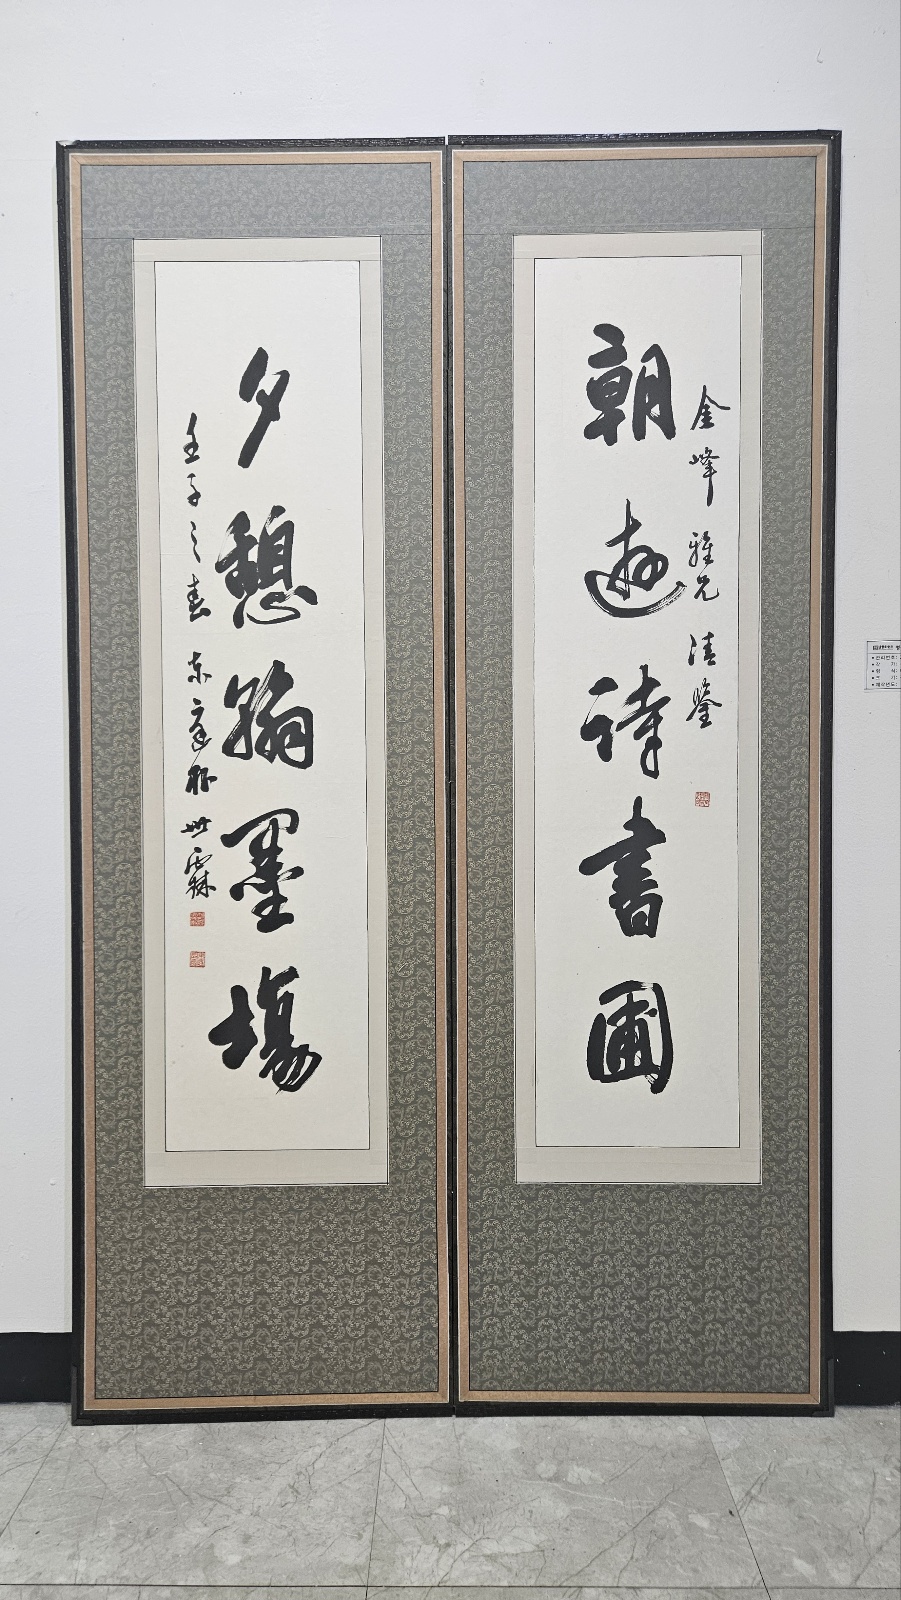 金峰雅兄清鑒
朝遊詩書圃
夕憩翰墨場
壬子之春 東庭 世霖